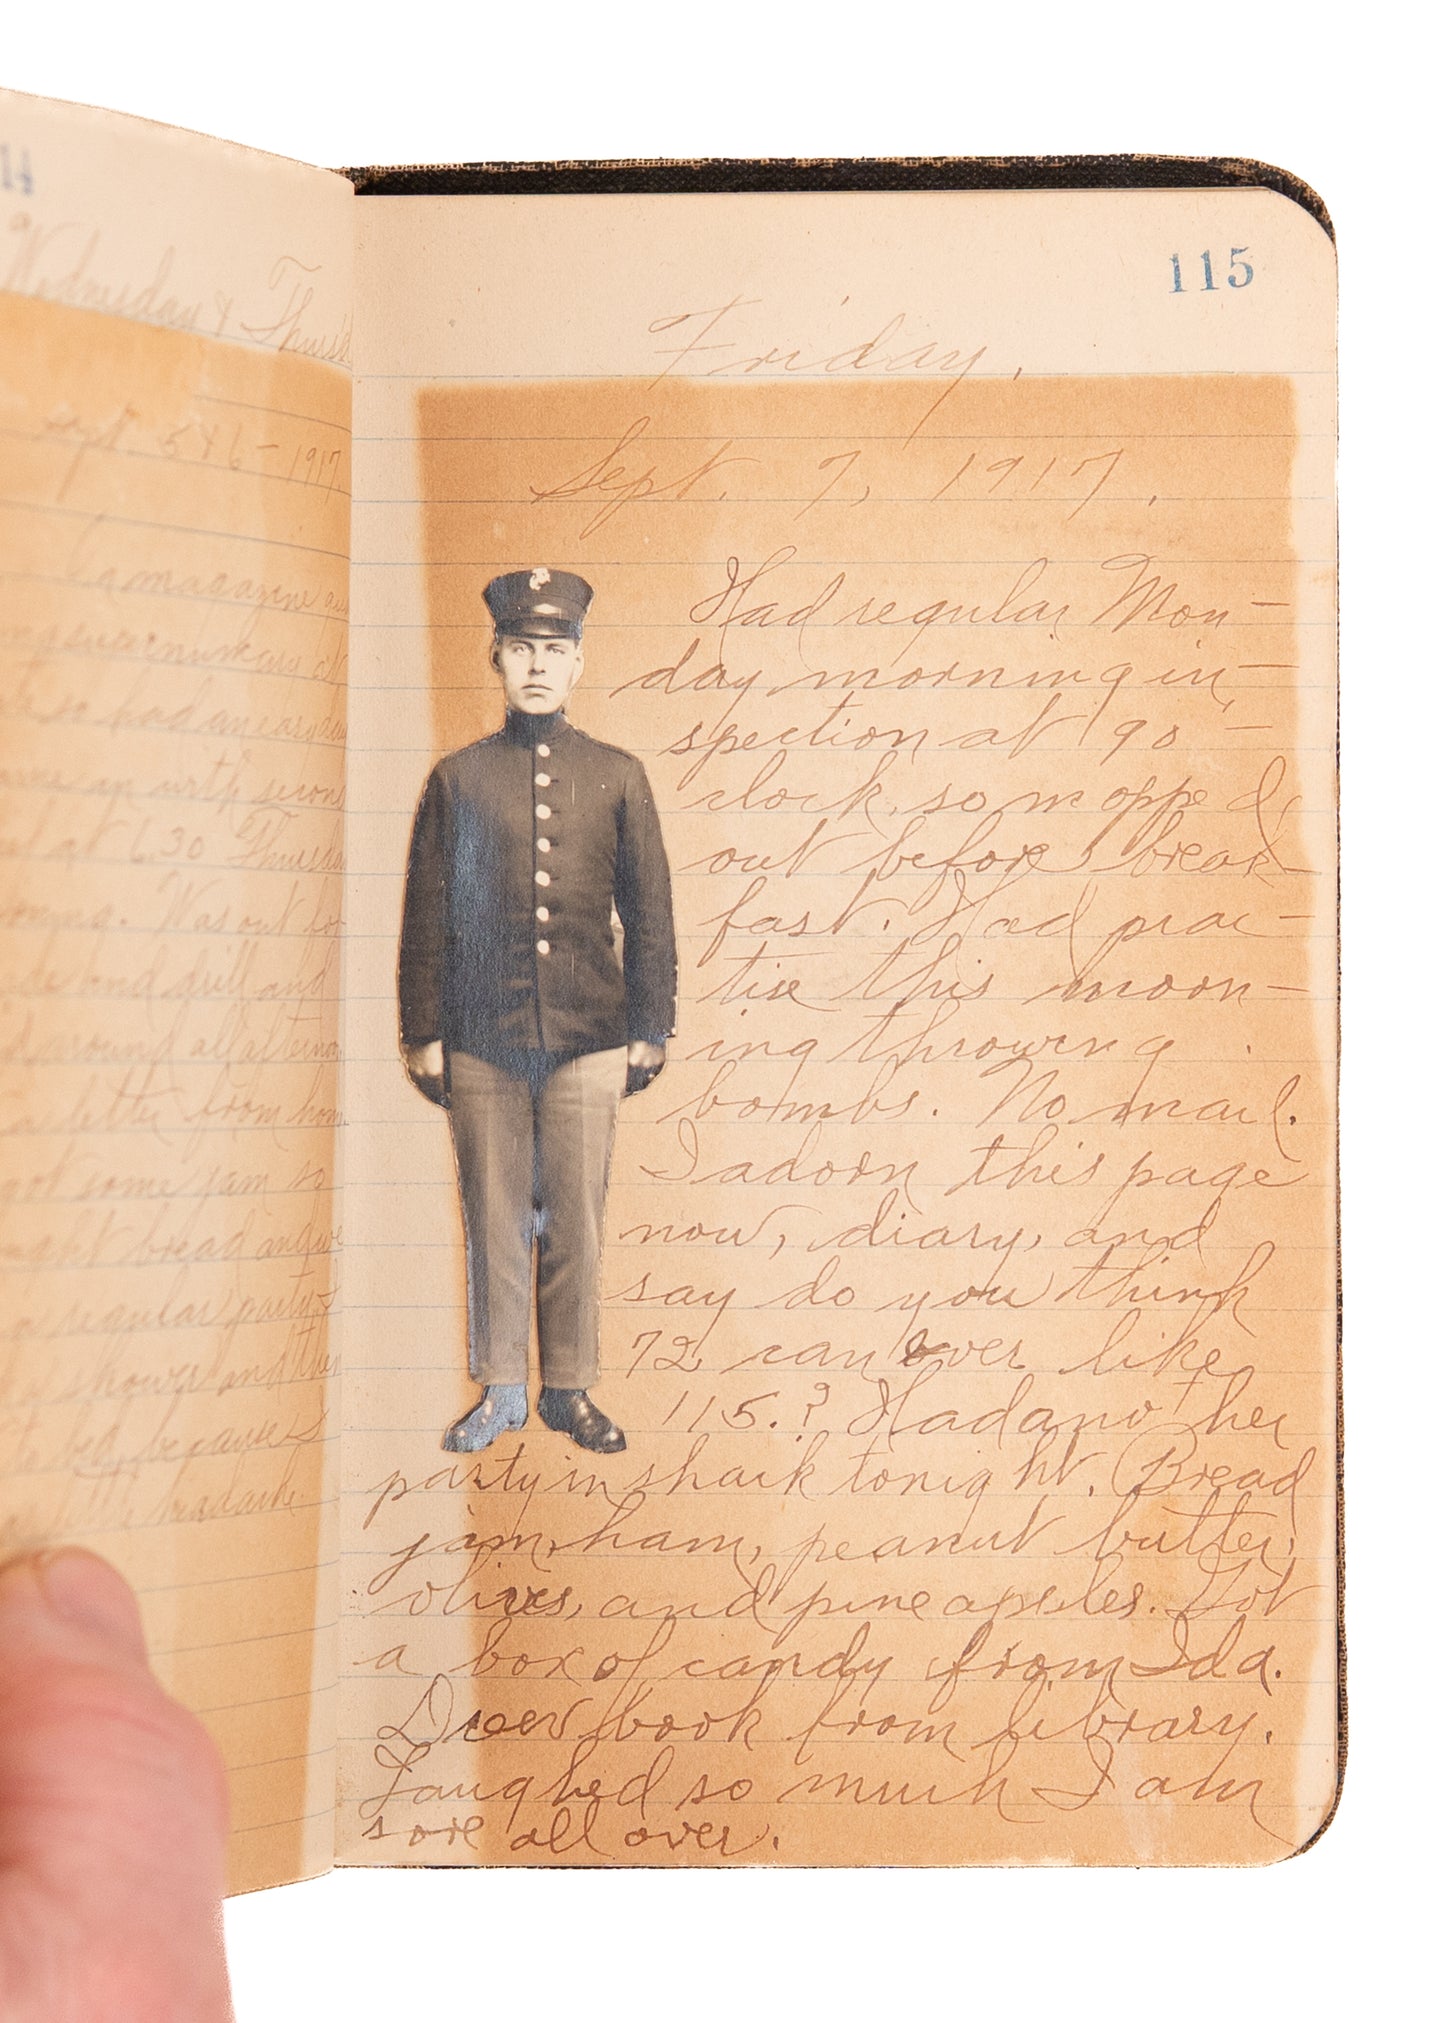 14
Wednesday & Thursd
Sept. 5 & 6 - 1917
magazine
so had an early
up with second
at 6.30 Thursday
Was out for
and drill and
round all afternoon
a letter from home
got some jam so
bread and we
a regular party
shower and then
to bed, because I
headache
115
Friday.
Sept. 7, 1917.
Had regular Mon-
day morning in-
spection at 9 o'-
clock, so mopped
out before break-
fast. Had prac-
tice this moon-
ing throwing
bombs. No mail.
I adorn this page
now, diary, and
say do you think
72 can ever like
115.? Had ano ther
party in shack tonight. (Bread
jam, ham, peanut butter,
olives, and pineapples. Got
a box of candy from Ida.
Drew book from library.
Laughed so much I am
sore all over.